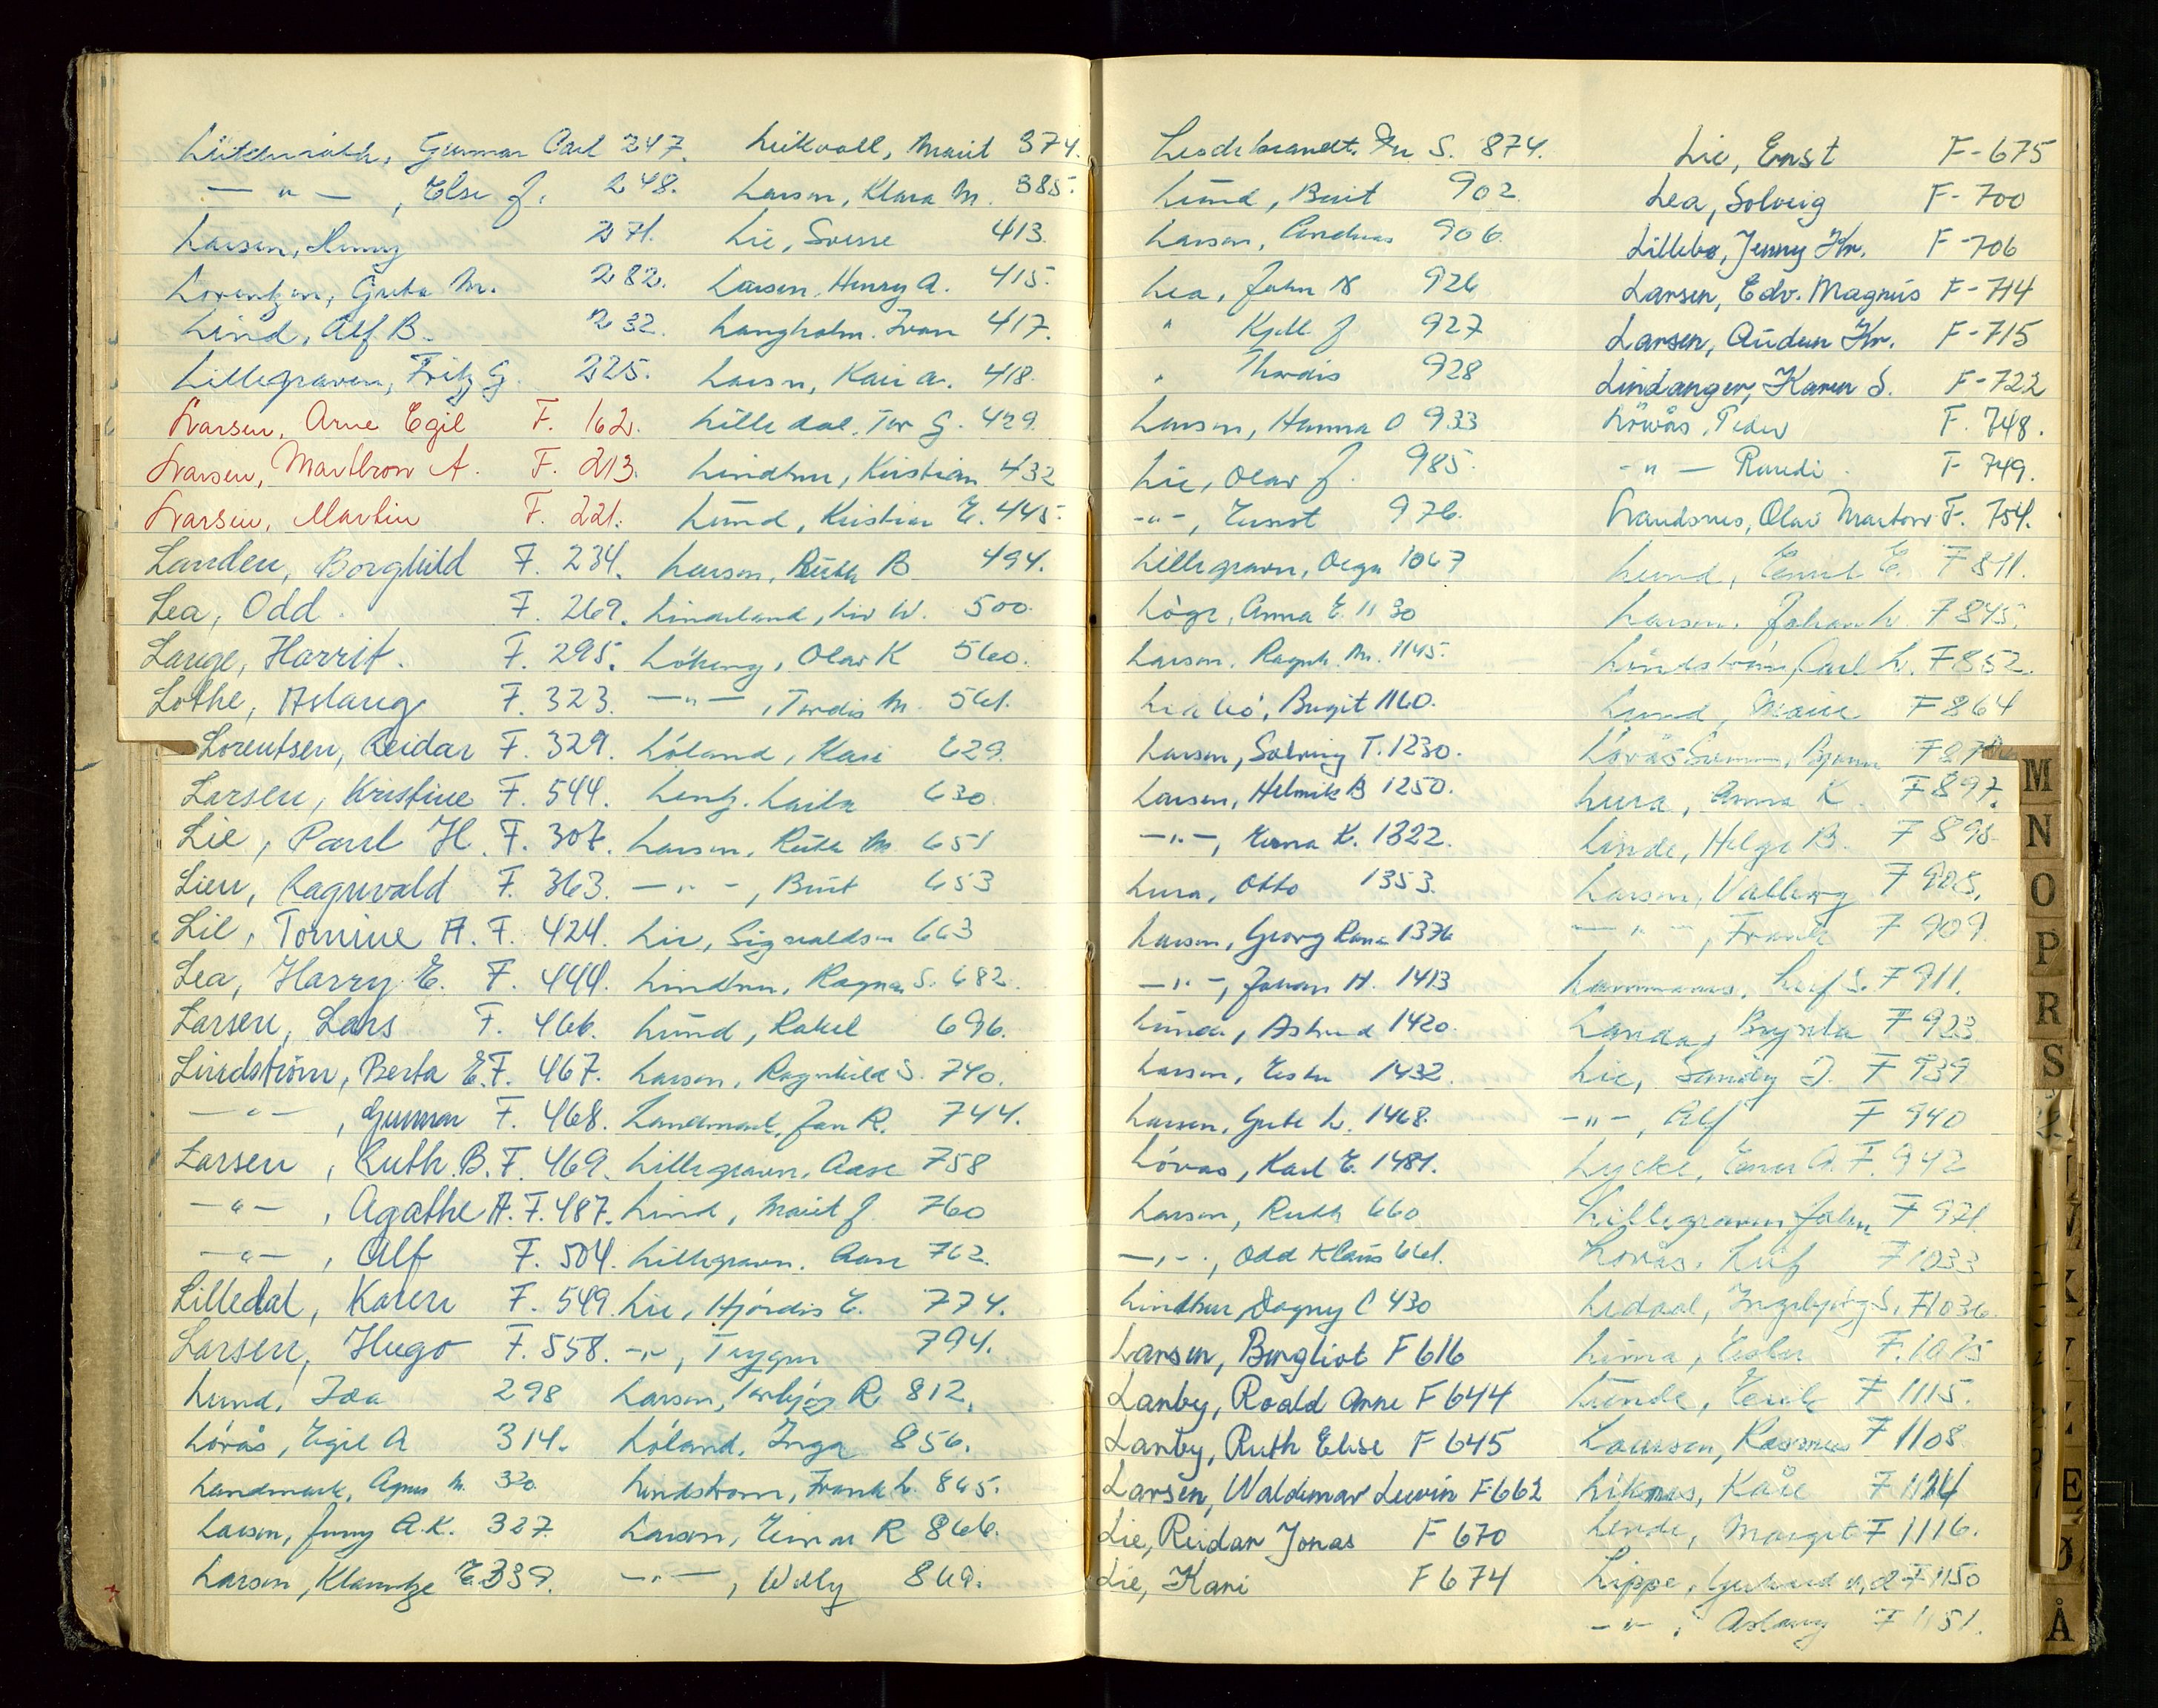 Gunnar Carl 247.
— " — , Else J. 248.
Larsen, Henny 271.
Lorentzen, Greta M. 282.
Lind, Alf B. 232.
Lillegraven, Fritz G. 225.
Larsen, Arne Egil F. 162.
Larsen, Marthron A. F. 213.
Larsen, Martin F. 221.
Landen, Borghild F. 234.
Lea, Odd. F. 269.
Lange, Harrit. F. 295.
Lothe, Aslaug F. 323.
Lorentsen, Reidar F. 329.
Larsen, Kristine F. 544.
Lie, Paul H. F. 307.
Lien, Ragnvald F. 363.
Lie, Tomine A. F. 424.
Lea, Harry E. F. 444.
Larsen, Lars F. 466.
Lindström, Berta E. F. 467.
— " — , Gunnar F. 468.
Larsen, Ruth B. F. 469.
— " — , Agathe A. F. 487.
— " — , Alf F. 504.
Lilledal, Karen F. 549.
Larsen, Hugo F. 558.
Lund, Ida 298
Lövås, Egil A 314.
Landmark, Agnes M. 320.
Larsen, Jenny A.K. 327.
Larsen, E. 339.
Leikvoll, Marit 374.
Larsen, Klara M. 385.
Lie, Sverre 413.
Larsen, Henry A. 415.
Langholm, Ivan 417.
Larsen, Kari A. 418.
Lilledal, Tor G. 429.
Lindtner, Kristian 432
Lund, Kristian E. 445.
Larsen, Ruth B 494.
Linderland, Liv W. 500.
Löking, Olav K 560.
— " — , Tordis M. 561.
Löland, Kari 629.
Lentz, Laila 630.
Larsen, Ruth M. 651
— " — , Berit 653
Lie, Sigvaldsen 663
Lindtner, Ragna S. 682.
Lund, Rakel 696.
Larsen, Ragnhild S. 740.
Landmark, Jan R. 744.
Lillegraven, Aase 758
Lind, Marit J. 760
Lillegraven, Aase 762.
Lie, Hjördis E. 774.
— " — , Trygve 794.
Larsen, Torbjørg R. 812.
Löland, Inga 856.
Lindstrøm, Frank L. 865.
Larsen, Einar R 866.
— " — , Willy 869.
S. 874.
Lund, Berit 902.
Larsen, Andreas 906.
Lea, John N 926
" Kjell J 927
" Thordis 928
Larsen, Hanna O 933
Lie, Olav J. 985.
— " — , Ernst 976.
Lillegraven, Olga 1067
Löge, Anna E. 1130
Larsen, Ragnh. M. 1145.
Birgit 1160.
Larsen, Solveig T. 1230.
Larsen, Helmik B 1250.
— " — , Erna K. 1322.
Lura, Otto 1353.
Larsen, Georg 1376
— " — , Johan H. 1413
Lunde, Astrid 1420.
Larsen, Ester 1432.
Larsen, Grete L. 1468.
Lövås, Karl E. 1481.
Larsen, Ruth 660
— " — , Odd Klaus 661.
Lindtner, Dagny C 430
Larsen, Bergliot F 616
Lanby, Roald Arne F 644
Lanby, Ruth Elise F 645
Larsen, Waldemar Levin F-662
Lie, Reidar Jonas F 670
Lie, Kari F 674
Lie, Ernst F-675
Lea, Solveig F-700
Lillebø, Jenny Kr. F-706
Larsen, Edv. Magnus F-714
Larsen, Audun Kr. F-715
Lindanger, Karen S. F-722
Lövås, Peder F. 748.
— " — Randi. F 749.
Landsnes, Olav Marton F. 754.
Lund, Emil E. F 811.
Larsen, Johan L. F 845.
Lindström, Carl L. F 852.
Lund, Marie F 864
Lövås Bjarne
Lura, Anna K. F 897.
Linde, Helge B. F 898
Larsen, Valborg F 905.
— " — , Frank F 909.
Lammanes, Leif S. F 911.
Landa, Brynla F 923
Lie, Sandy J. F 939
— " — , Alf F 940
Lycke, Einar A. F. 942
Lillegraven John F 971.
Lövås, Leif F 1033
Ledaal, Ingebjørg S. F 1036.
Lima, Esther F. 1075
Lunde, Erik F 1115.
Laursen, Rasmus F 1108
Liknes, Kåre F 1124
Lende, Margit F 1116.
Lippe, Gerhard v.d. F 1150
— " — , Aslaug F 1151.
M
N
O
P
R
S
E
Ø
Å